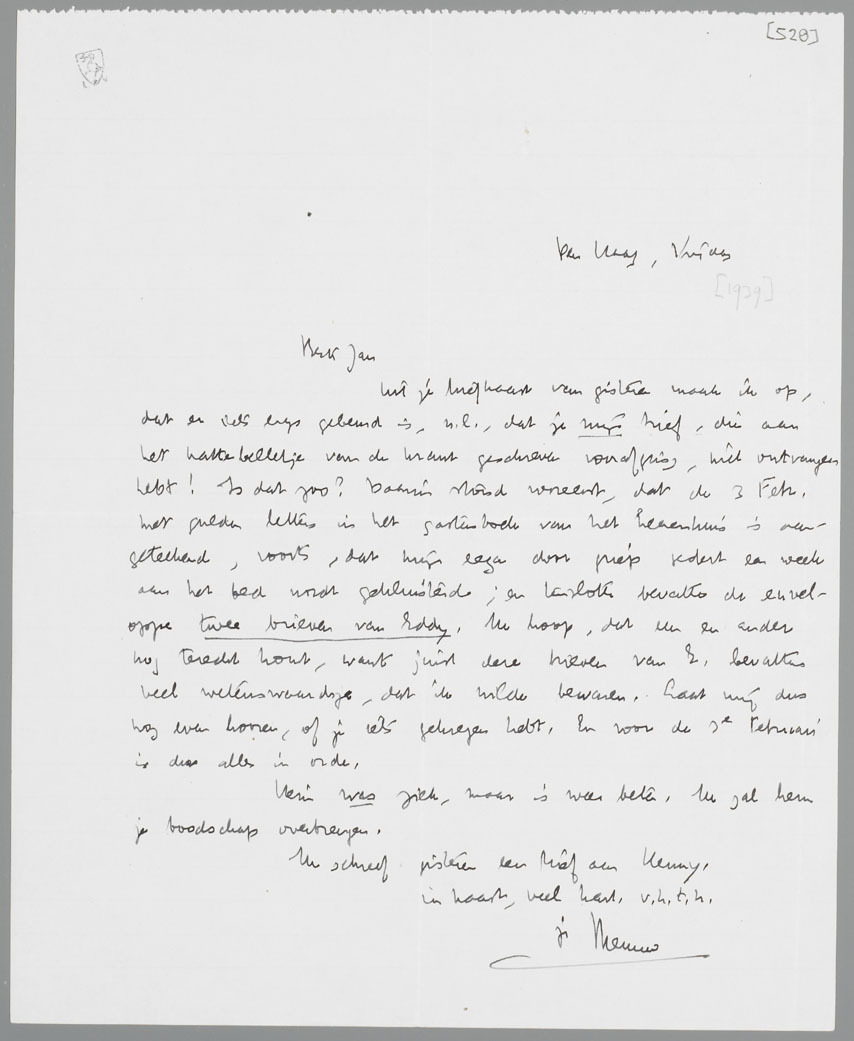 [528]
Den Haag, Vrijdag
[1939]
Beste Jan
Uit je briefkaart van gisteren maak ik op,
dat er iets ergs gebeurd is, n.l., dat je mijn brief, die aan
het krattebelletje van de krant geschreven voorafging, niet ontvangen
hebt! Is dat zoo? Daarin stond vooreerst, dat de 3 Febr.
met gulden letters in het gastenboek van het heerenhuis is aan-
geteekend, voorts, dat mijn eega door griep sedert een week
aan het bed wordt gekluisterd; en tenslotte bevatte de envel-
oppe twee brieven van Eddy. Ik hoop, dat een en ander
nog terecht komt, want juist deze brieven van E. bevatten
veel wetenswaardigs, dat ik wilde bewaren. Laat mij dus
nog even hooren, of je iets gekregen hebt. En voor de 3e Februari
is dus alles in orde.
was ziek, maar is weer beter. Ik zal hem
je boodschap overbrengen.
Ik schreef gisteren een brief aan Henny.
in haast, veel hart. v.h.t.h.
je Menno